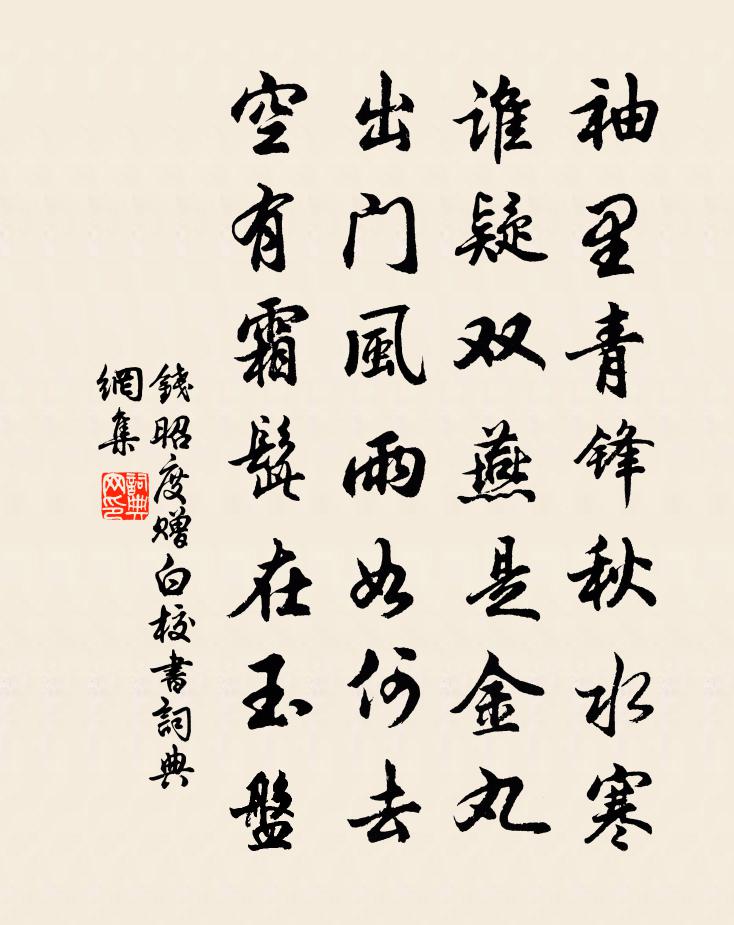 袖里青锋秋水寒
谁疑双燕是金丸
出门風雨如何去
空有霜髭在玉盤
錢昭度赠白校書詞典
網集
詞典
网印